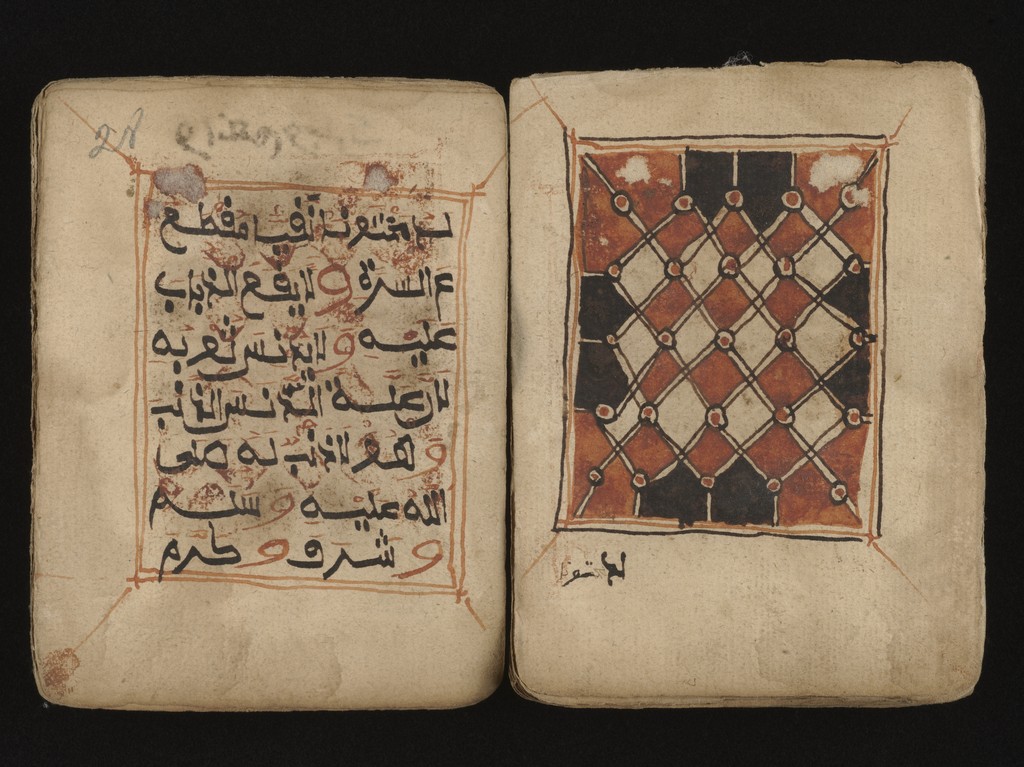 لد مختونا نقيا مقطع
السرة و لا يقع الذباب
عليه و لا يدنس ثوبه
لان علة الدنس الذنب
و هو لا ذنب له صلى
الله عليه و سلم
و شرف و كرم